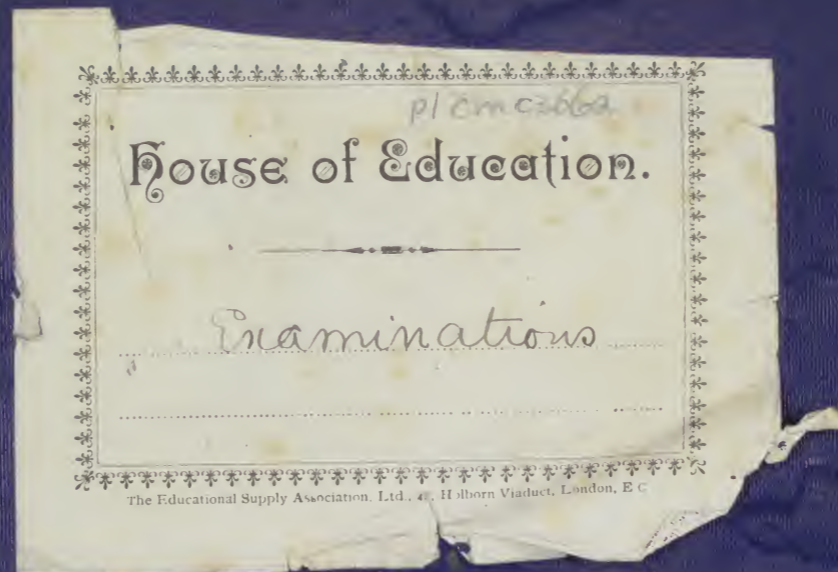 p1 cmc366a
House of Education.
Examinations
The Educational Supply Association, Ltd., Holborn Viaduct, London, E C